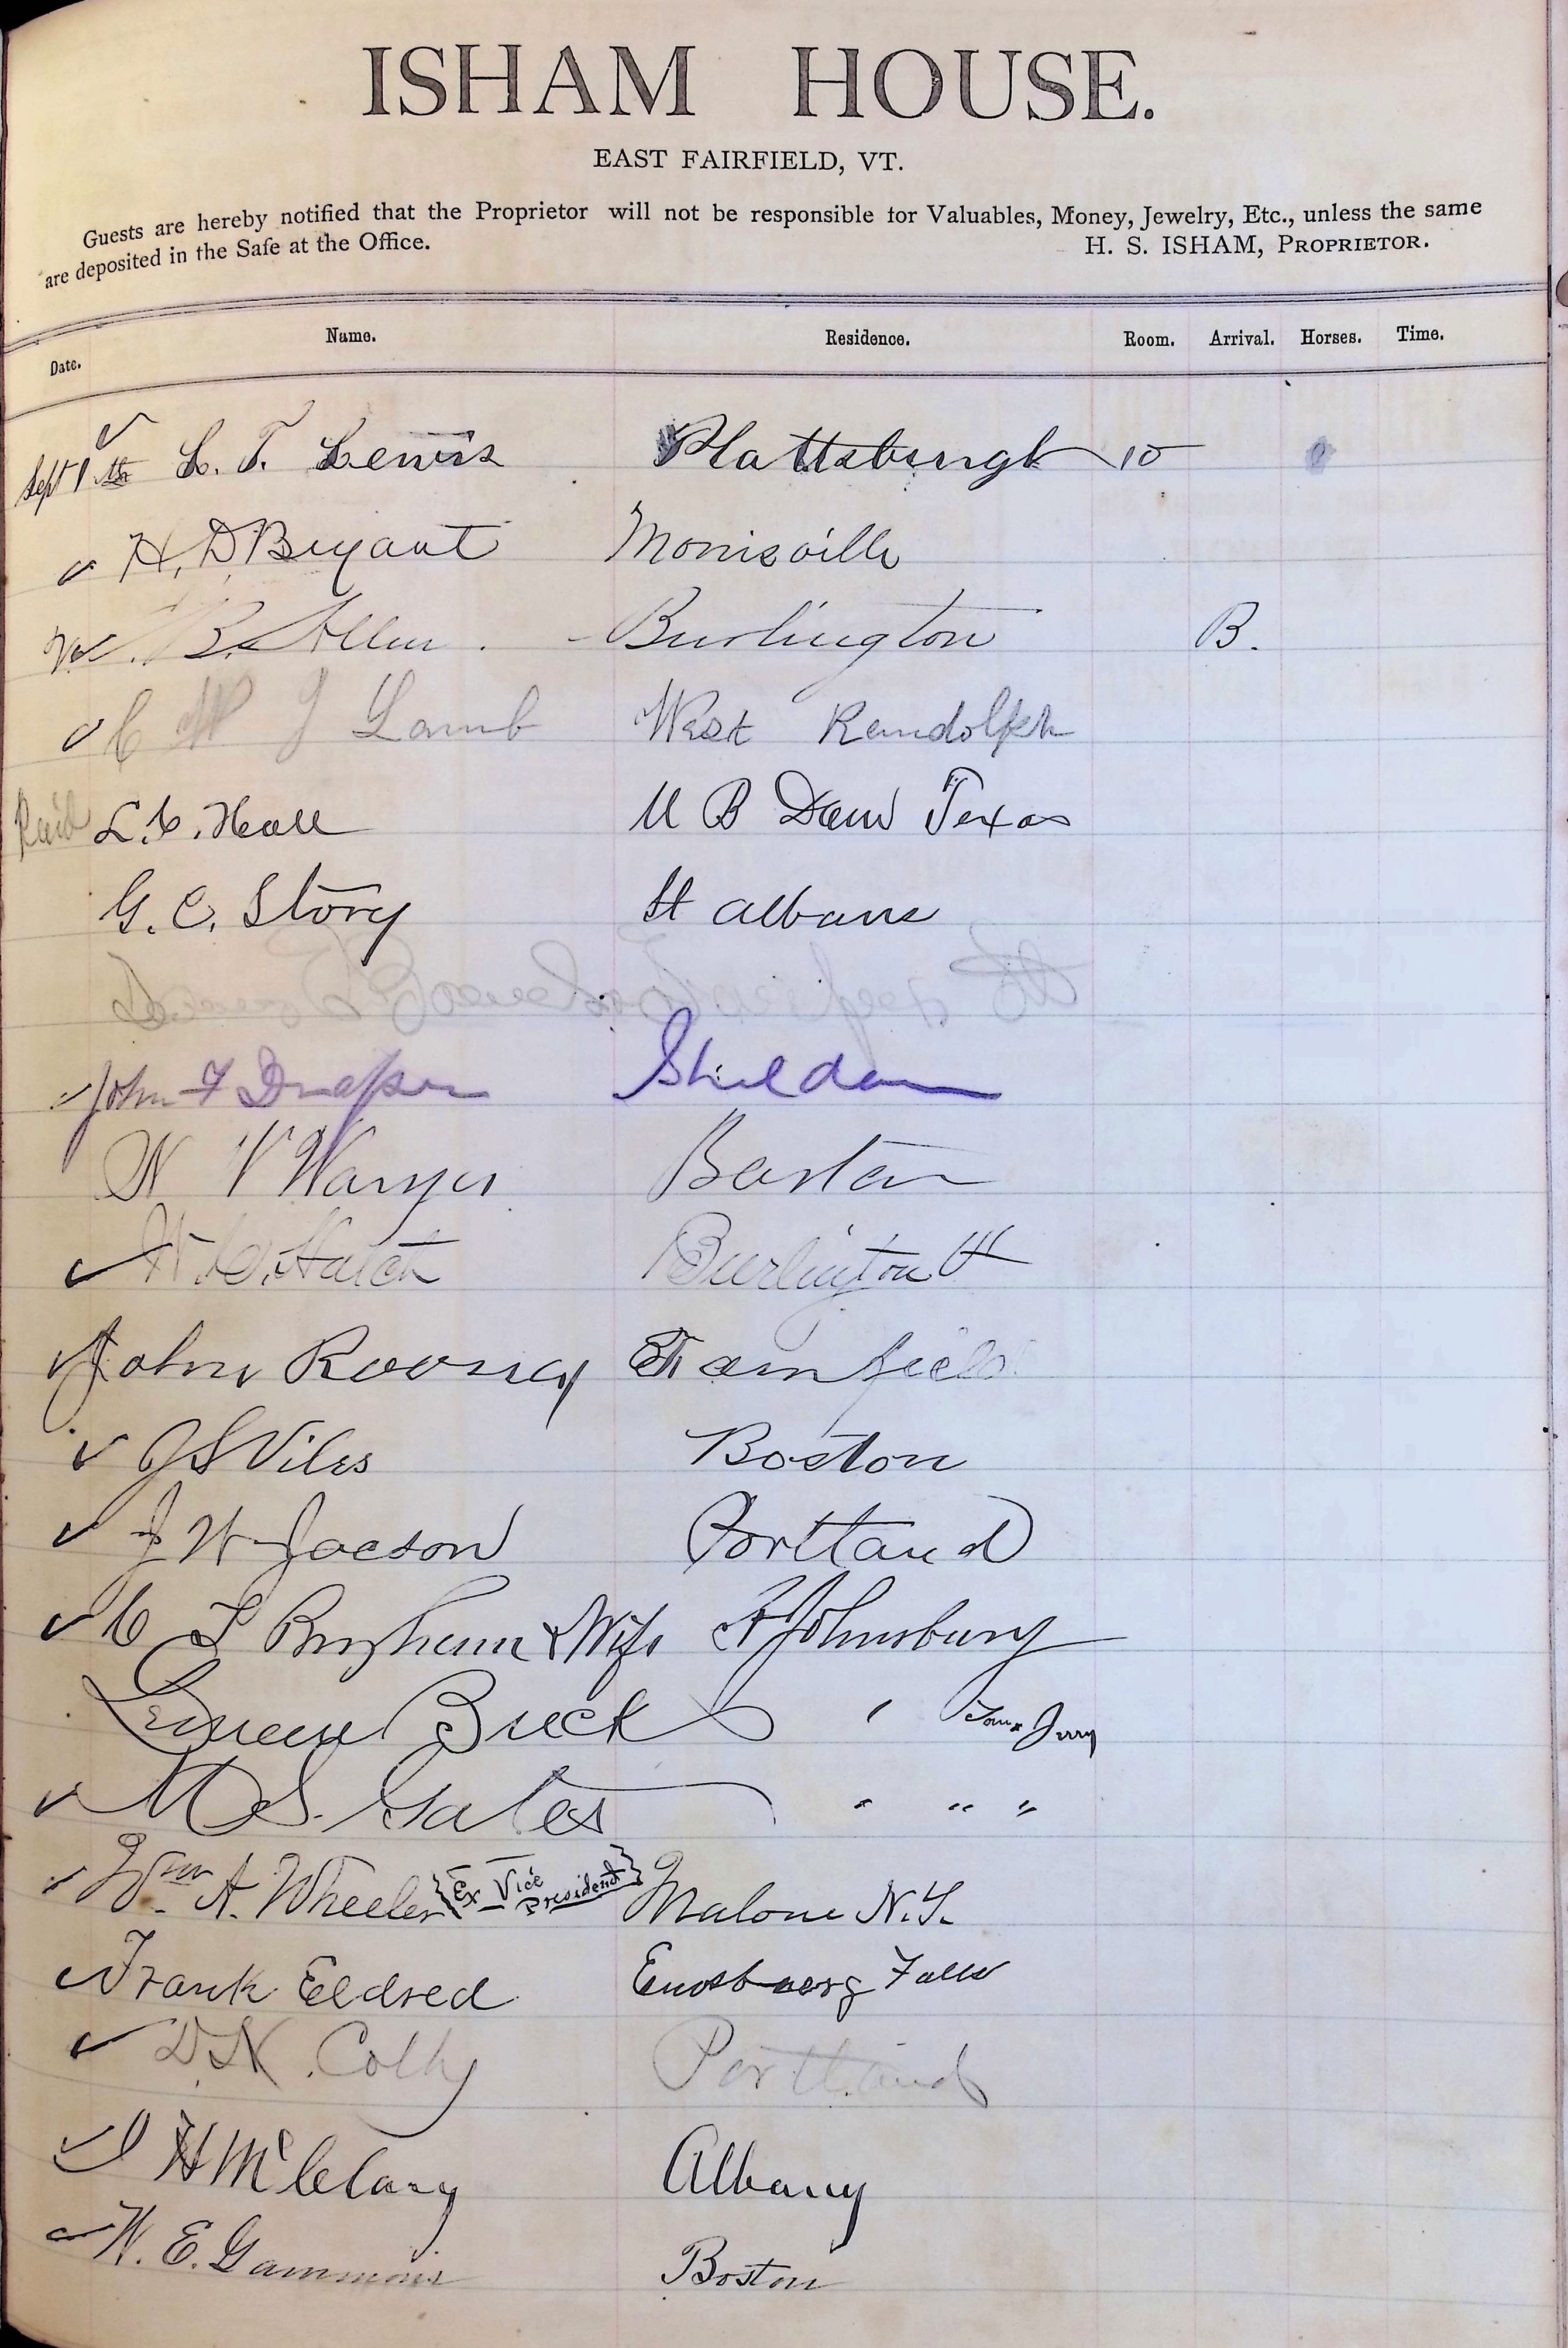 ISHAM HOUSE.
EAST FAIRFIELD, VT.
Guests are hereby notified that the Proprietor will not be responsible for Valuables, Money, Jewelry, Etc., unless the same
are deposited in the Safe at the Office. H. S. ISHAM, PROPRIETOR.
Date. Name. Residence. Room. Arrival. Horses. Time.
Sept 1 th L. T. Lewis Plattsburgh 10
H. D Bryant Morrisville
B. Allen. Burlington B.
C W J Lamb West Randolph
Paid L. C. Hall U B Texas
G. C. Story St albans
John F Draper Sheldon
N V Warner Barton
W. C. Hatch Burlington Vt
John Rooney Fairfield
J S Viles Boston
J W Jacson Portland
C L Brigham & Wife St Johnsbury
Buck " Tom & Jerry
M S. Gates " " "
Wm A. Wheeler {Ex Vice President} Malone N.Y.
Frank Eldred Enosburg Falls
D. N. Colby Portland
J H McClary Albany
W. E. Gammons Boston